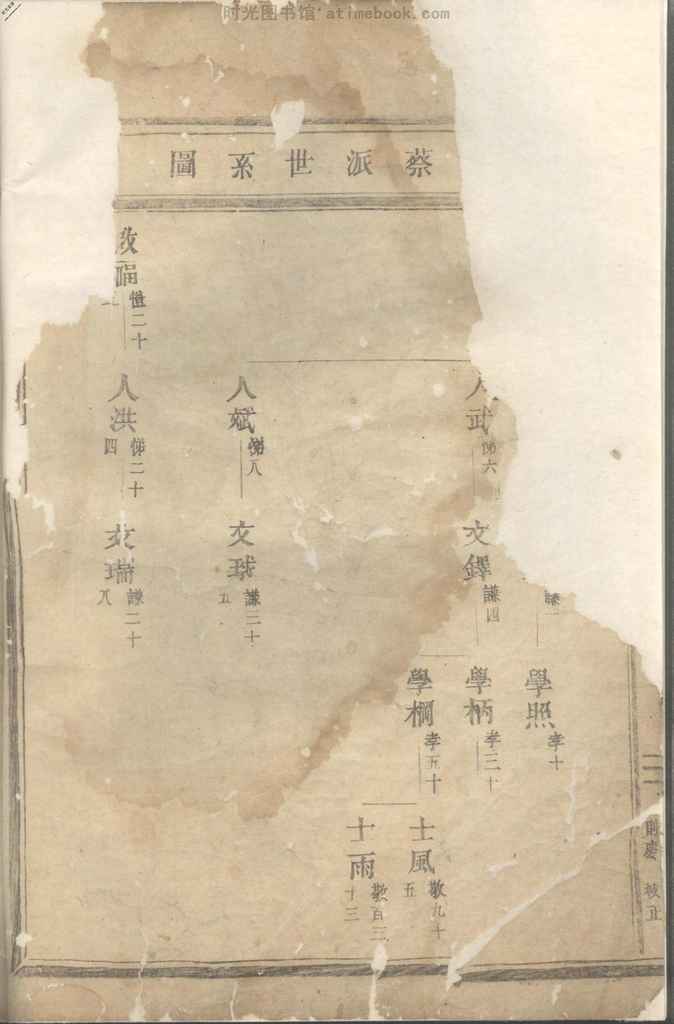 时光图书馆 atimebook.com
蔡派世系圖
人武 悌六
文鐸 謙四
學照 孝十
學柄 孝三十
學棡 孝五十
士風 敬九十五
士雨 敬百三十三
人斌 悌八
文球 謙二十五
人洪 悌二十四
文瑞 謙二十八
校正